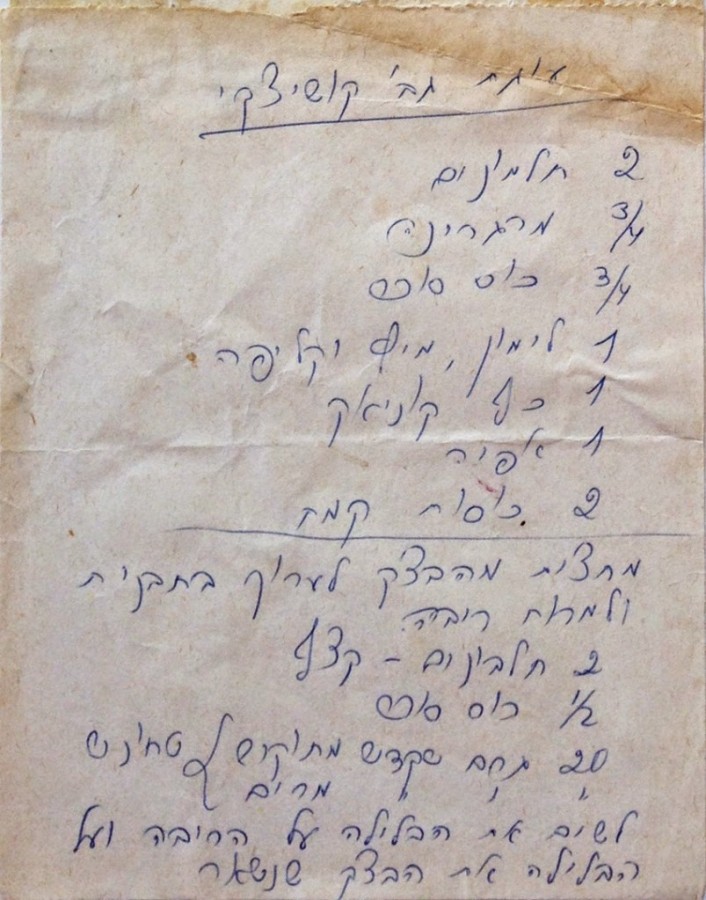 עוגת גב' קושיצקי
2 חלמונים
3/4 מרגרינה
3/4 כוס סוכר
1 לימון, מיץ וקליפה
1 כף קוניאק
1 אפיה
2 כוסות קמח
מחצית מהבצק לערוך בתבנית
ולמרוח ריבה
2 חלבונים - קצף
1/2 כוס סוכר
20 גרם שקדים מתוקים טחינש
" " " מרים
לשים את הבלילה על הריבה ועל
הבלילה את הבצק שנשאר